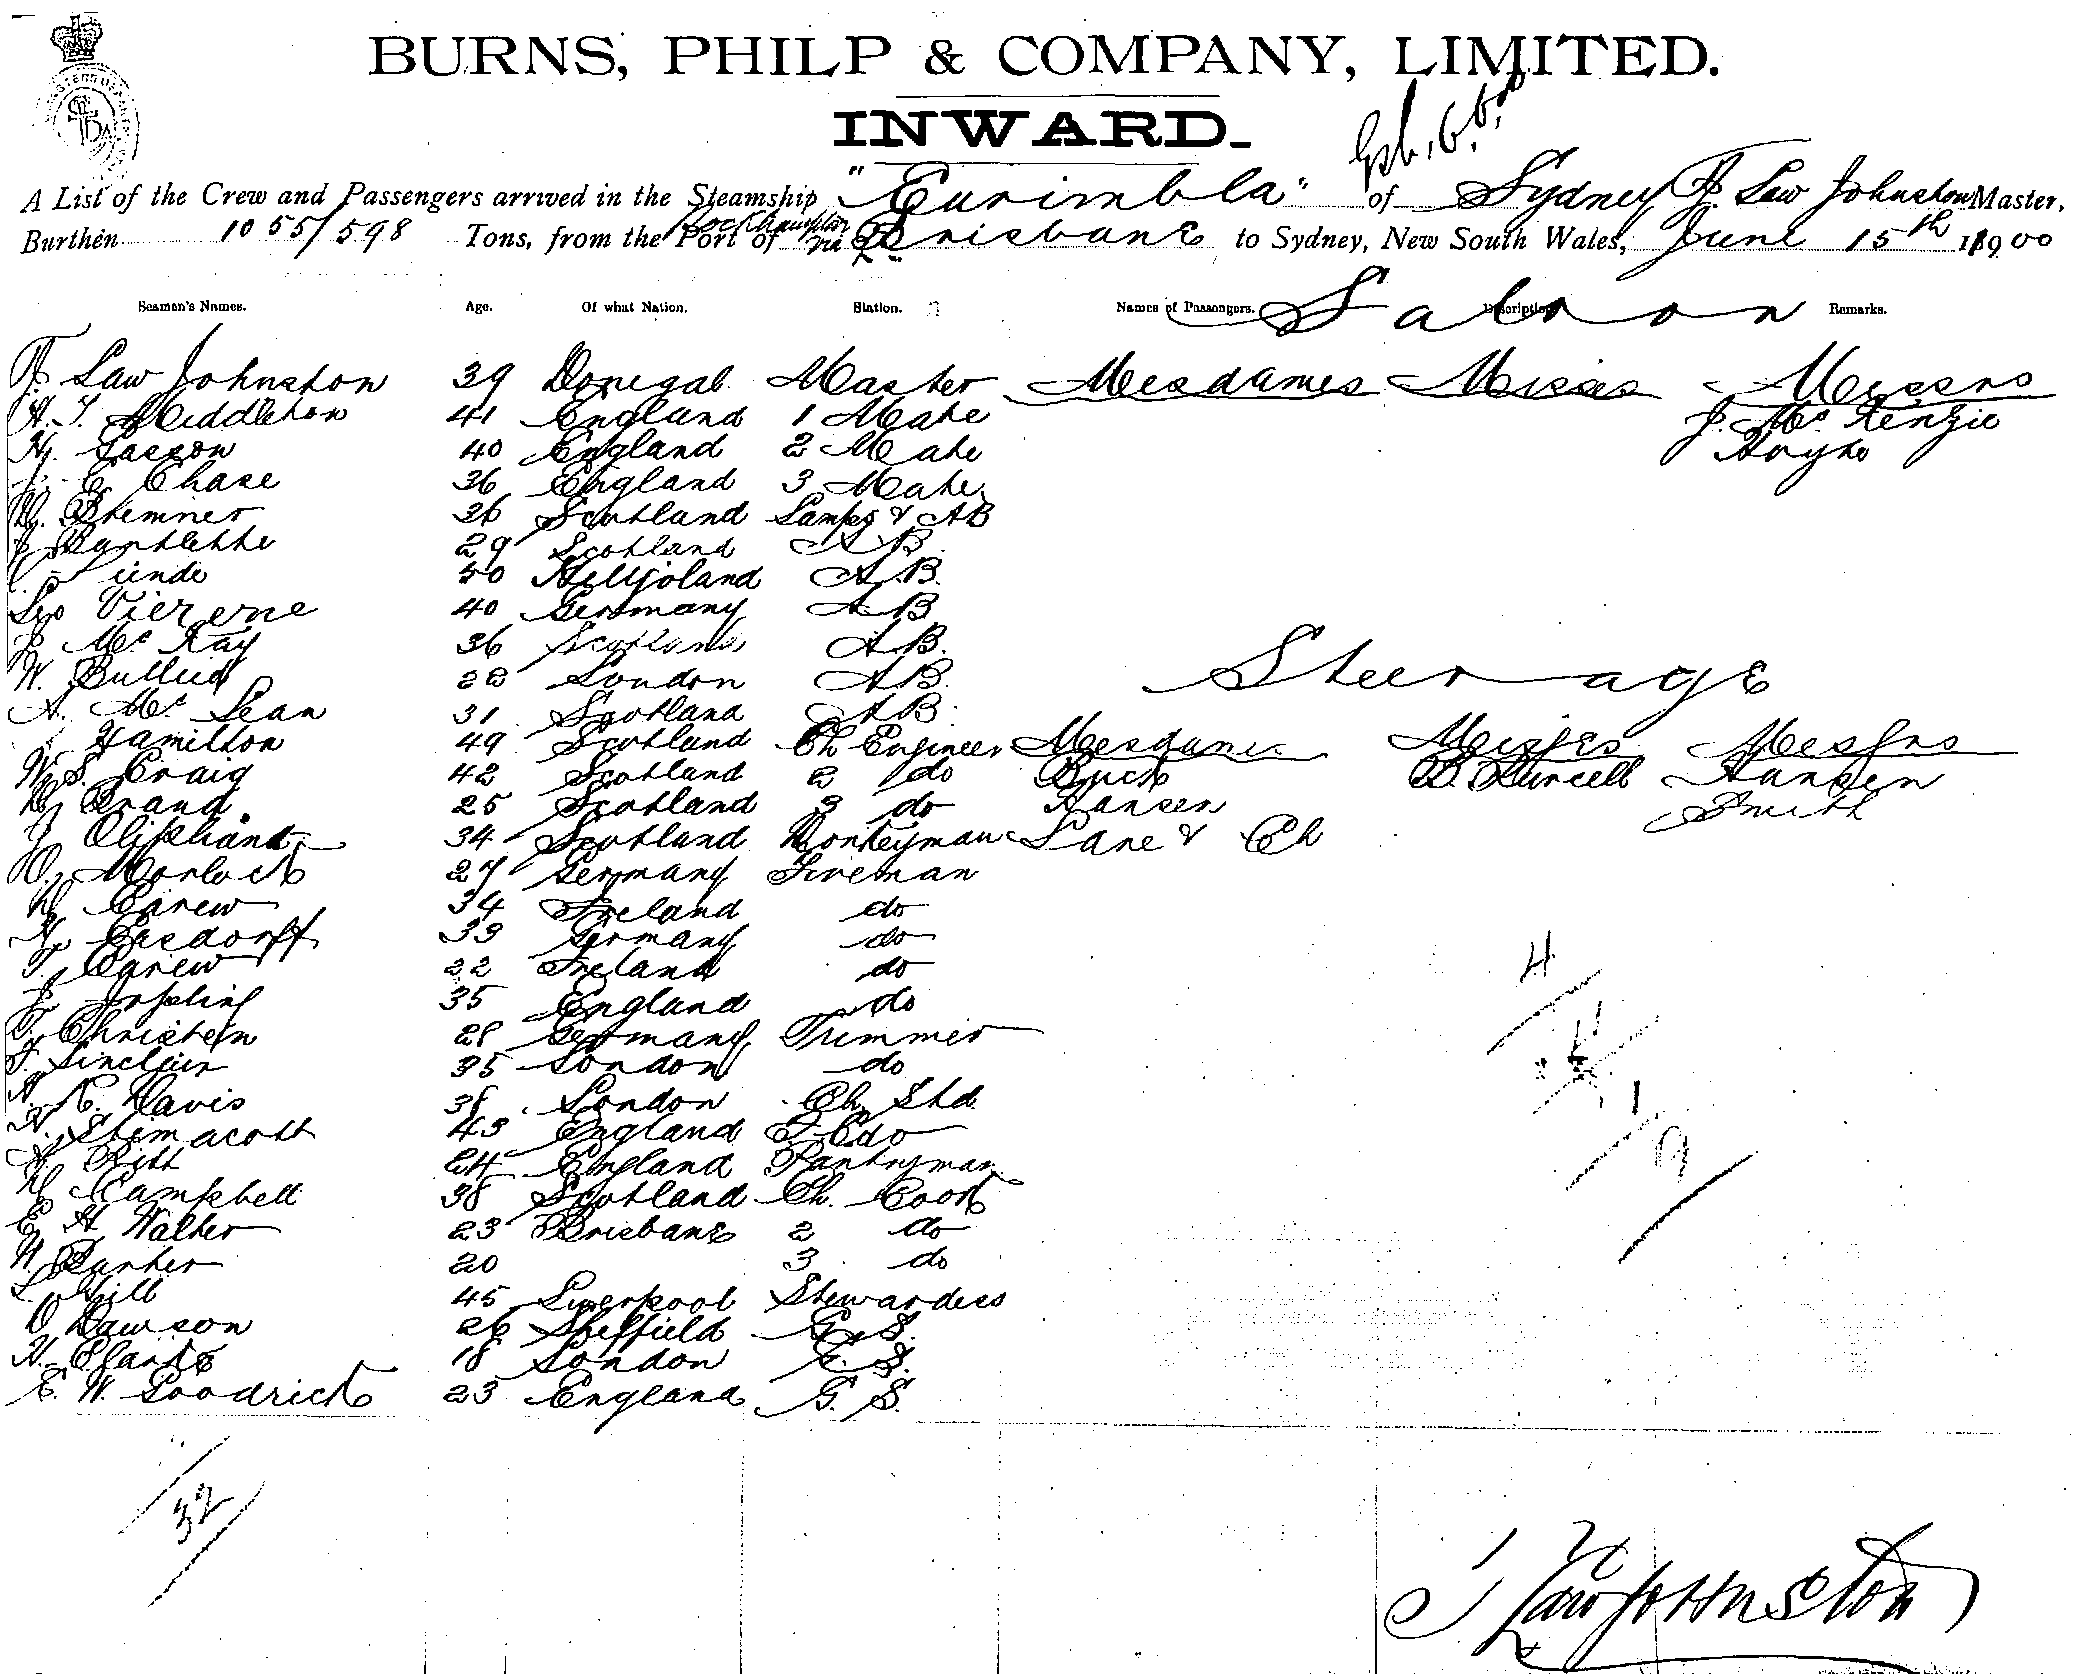 BURNS, PHILP & COMPANY, LIMITED.
INWARD.
A List of the Crew and Passengers arrived in the Steamship "Eurimbla" of Sydney F. Law Johnston Master,
Burthen 1055/598 Tons, from the Port of Rockhampton via Brisbane to Sydney, New South Wales, June 15th 1900
Seamen's Names. Age. Of what Nation. Station. Names of Passengers. Description Remarks.
Saloon
F. Law Johnston 39 Donegal Master Mesdames Misses Messrs
H. T. Middleton 41 England 1 Mate J. McKenzie
H. Saxon 40 England 2 Mate
E Chase 36 England 3 Mate
36 Scotland Lamps & AB
29 Scotland AB
Heligoland A.B.
Geo 40 Germany AB
J McKay 36 Scotland AB.
W. London AB.
A. McLean 31 Scotland AB.
Steerage
Hamilton 49 Scotland Ch Engineer Mesdames Misses Messrs
W. S. Craig 42 Scotland 2 do Buck B. Purcell Hansen
Brand 25 Scotland 3 do Hansen Smith
J Oliphant 34 Scotland Donkeyman Lane & Ch
O. Morlock 27 Germany Fireman
Carew 34 Ireland do
Germany do
T. Carew 22 Ireland do
J. Jopling 35 England do
Christein 28 Germany Trimmer
F. Sinclair 35 London do
Davis 38 London Ch. Std.
43 England F C do
24 England Pantryman
D Campbell 38 Scotland Ch. Cook
E H Walter 23 Brisbane 2 do
20 3 do
Gill 45 Liverpool Stewardess
Dawson 26 Sheffield G. S.
H. Clarke 18 London G. S.
E. W. Goodrick 23 England G. S.
4
1
32
F Law Johnston